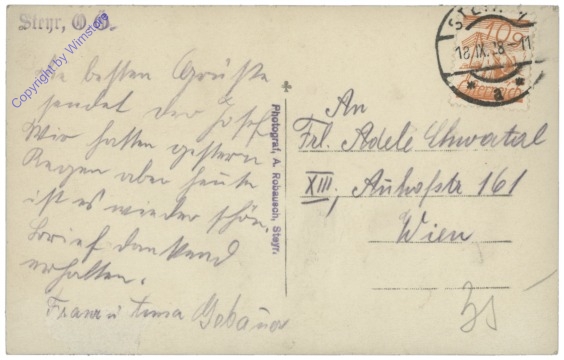 Steyr, O.Ö.
Copyright by Wimstore
Die besten Grüße
sendet der Josef
Wir hatten gestern
Regen aber heute
ist es wieder schön,
Brief dankend
erhalten.
Franz u Anna Gebauer
Photograf, A. Robausch, Steyr.
STEYR 1
18.IX.28-11
* a *
10g
ÖSTERREICH
An
Frl. Adele Chwatal
XIII, Auhofstr 161
Wien